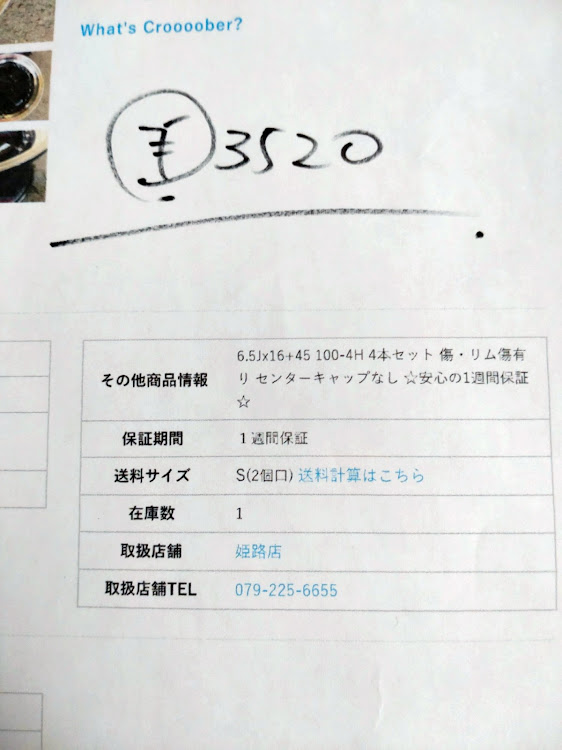 What's Croooober?
¥3520
その他商品情報
6.5Jx16+45 100-4H 4本セット 傷・リム傷有
り センターキャップなし ☆安心の1週間保証
☆
保証期間 1週間保証
送料サイズ S(2個口) 送料計算はこちら
在庫数 1
取扱店舗 姫路店
取扱店舗TEL 079-225-6655